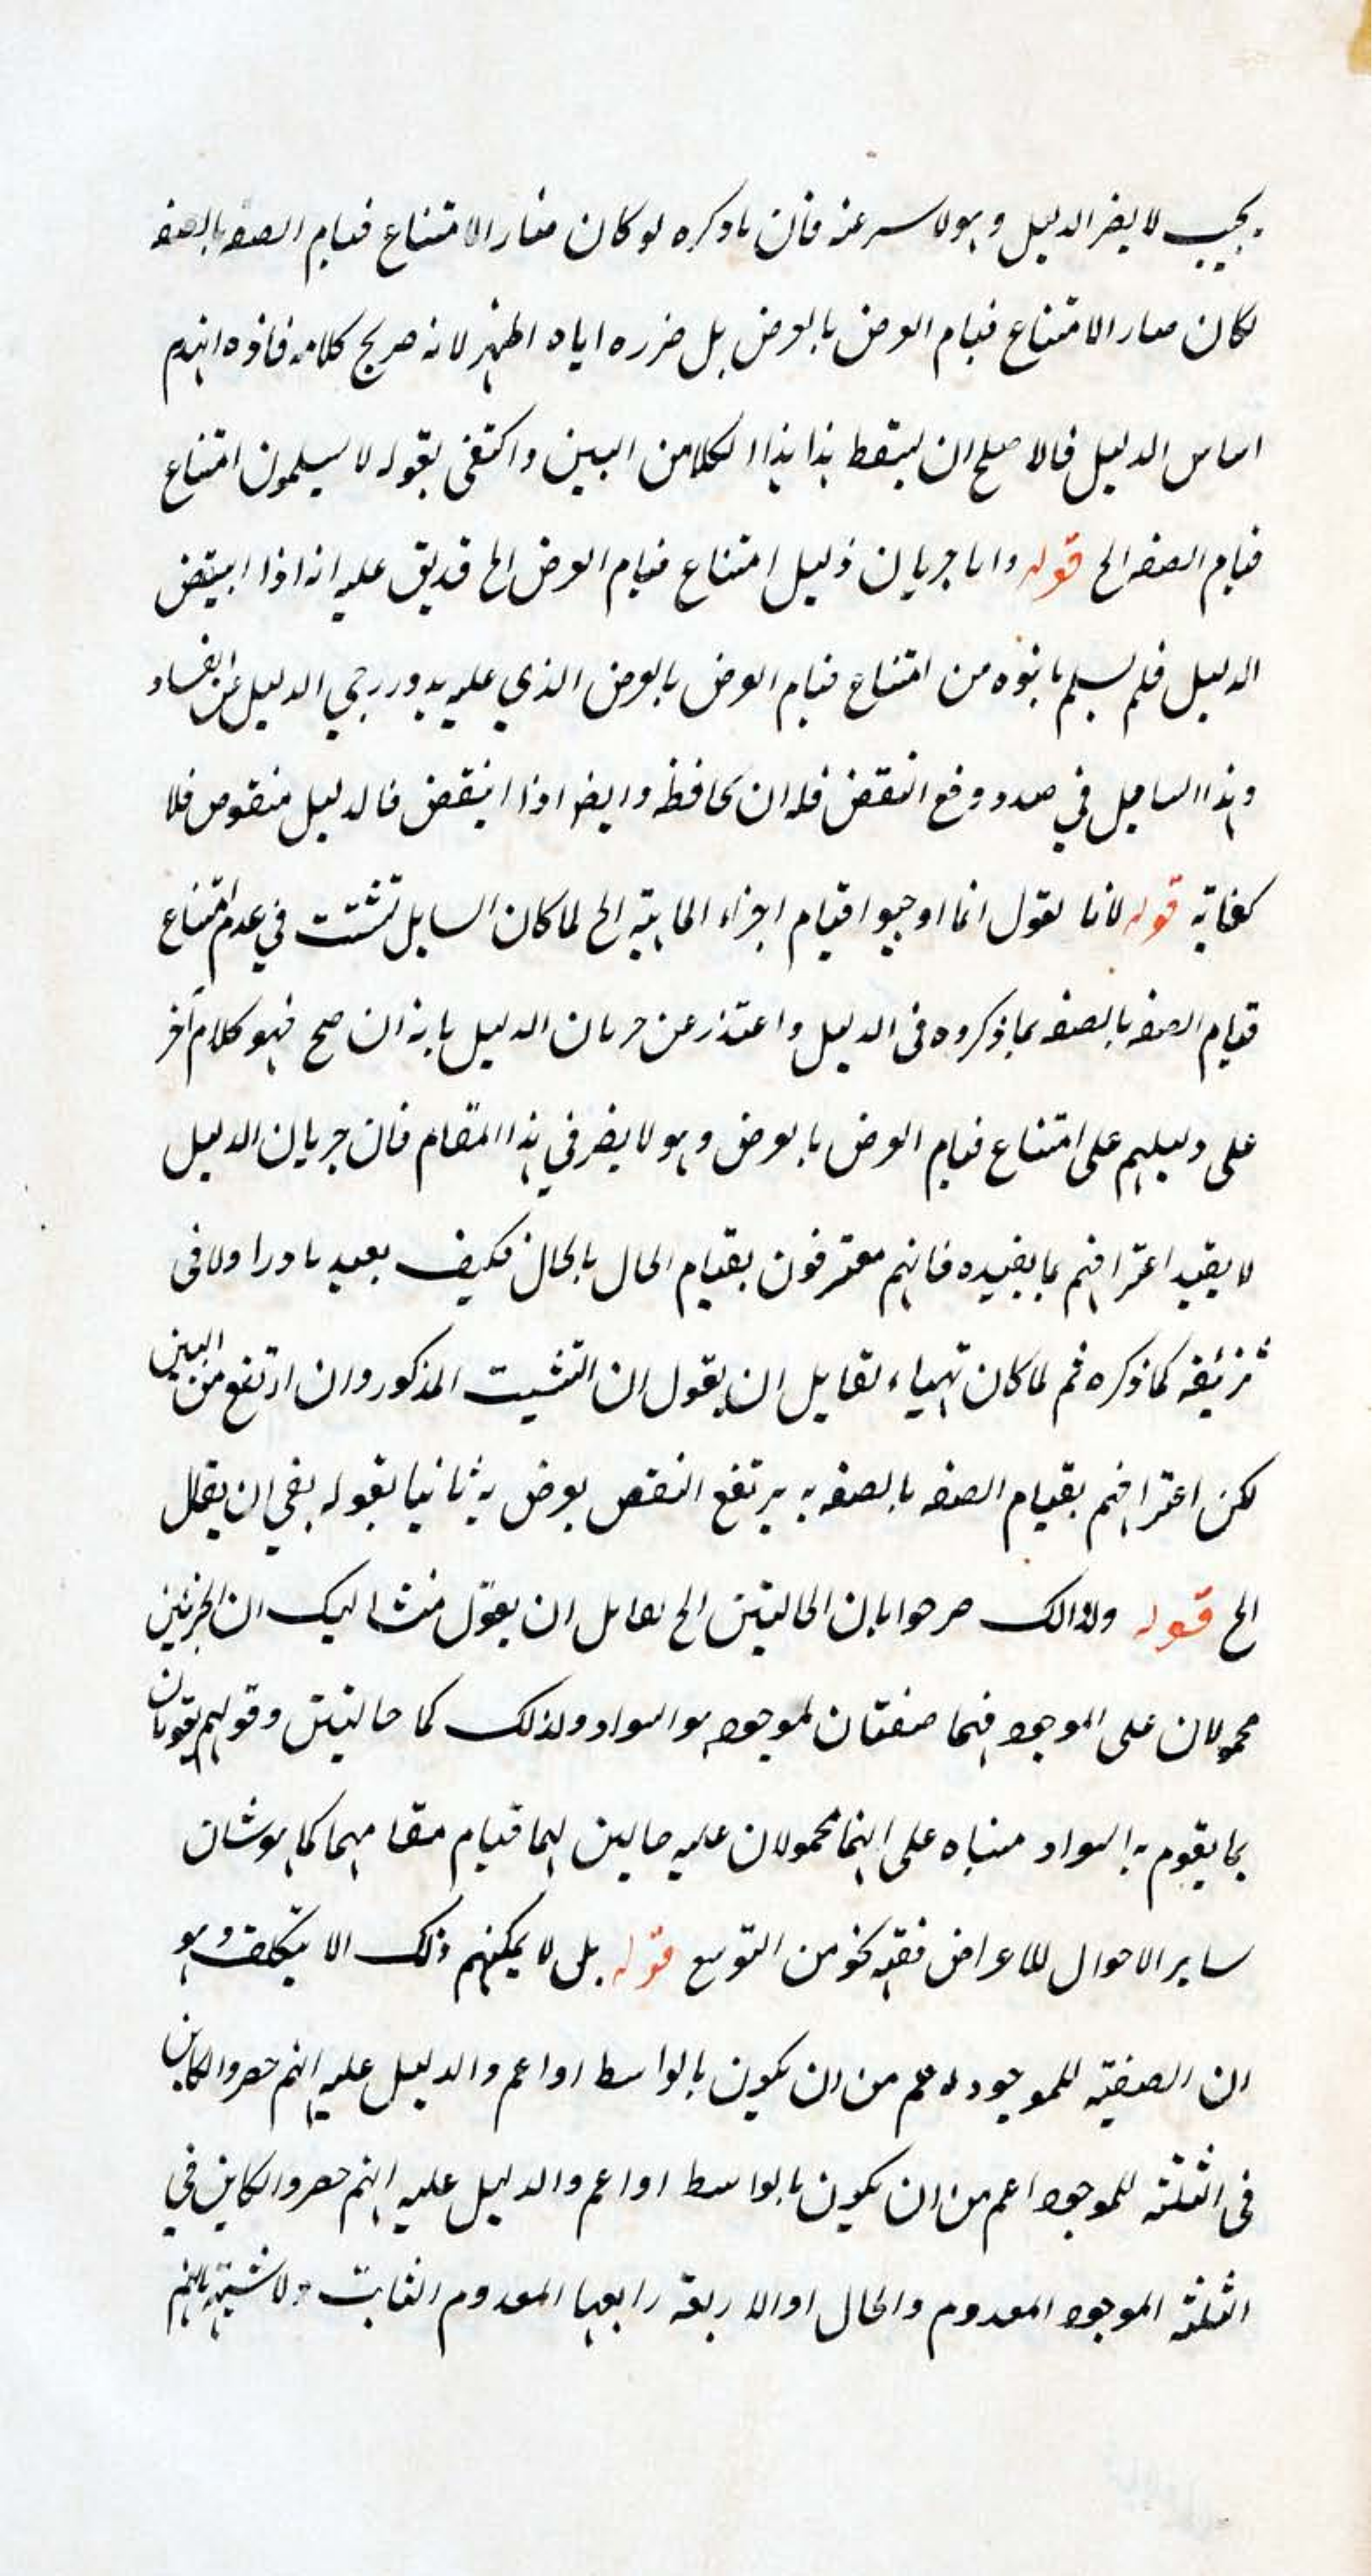 يجيب لا يضر الدليل وهو لا سرعنه فان ما ذكره لو كان منار الامتناع قيام الصفه بالصفه
لكان منار الامتناع قيام العرض بالعرض بل ضرره اياه اظهر لانه صريح كلامه فاذه انهدم
اساس الدليل فالاصلح ان يسقط هذا هذا الكلام من البين واكتفى بقوله لا يسلمون امتناع
قيام الصفه الخ قوله واما جريان دليل امتناع قيام العرض الخ قد يق عليه انه اذا انتقض
الدليل فلم يسلم ما بنوه من امتناع قيام العرض بالعرض الذي عليه يدور رحي الدليل عن الفساد
وهذا السايل في صدد دفع النقض فله ان يحافظه وايضا اذا انتقض فالدليل منقوص فلا
كفاية قوله لانا نقول انما اوجبوا قيام اجزاء الماهية الخ لما كان السايل تشتت في عدم امتناع
قيام الصفه بالصفه بما ذكروه في الدليل واعتذر عن جريان الدليل بانه ان صح فهو كلام آخر
على دليلهم على امتناع قيام العرض بالعرض وهو لا يضر في هذا المقام فان جريان الدليل
لا يقيد اعترافهم بما يفيده فانهم معترفون بقيام الحال بالحال فكيف يعيد ما درا ولا في
تزئيفه كما ذكره ثم لما كان تهياء لقايل ان يقول ان التشبت المذكور وان ارتفع من البين
لكن اعترافهم بقيام الصفه بالصفه به يرتفع النقص بعرض به ثانيا بقوله بقي ان يقال
الخ قوله ولذالك صرحوا بان الحاليتين الخ لقايل ان يقول منشا ليك ان الجزئين
محمولان على الموجود فهما صفتان لموجود هو السواد ولذلك كما حاليتين وقولهم يقومان
بما يقوم به السواد مبناه على انهما محمولان عليه حالين لهما قيام مقامهما كما هو شان
ساير الاحوال للاعراض ففيه نحو من التوسع قوله بل لا يمكنهم ذلك الا بتكلف وهو
ان الصفية للموجود اعم من ان يكون بالواسط او اعم والدليل عليه انهم حصروا الكاين
في الثلثة للموجود اعم من ان يكون بالواسط او اعم والدليل عليه انهم حصروا الكاين في
الثلثة الموجود المعدوم والحال او الاربعة رابعها المعدوم الثابت ولا شبهة بانهم